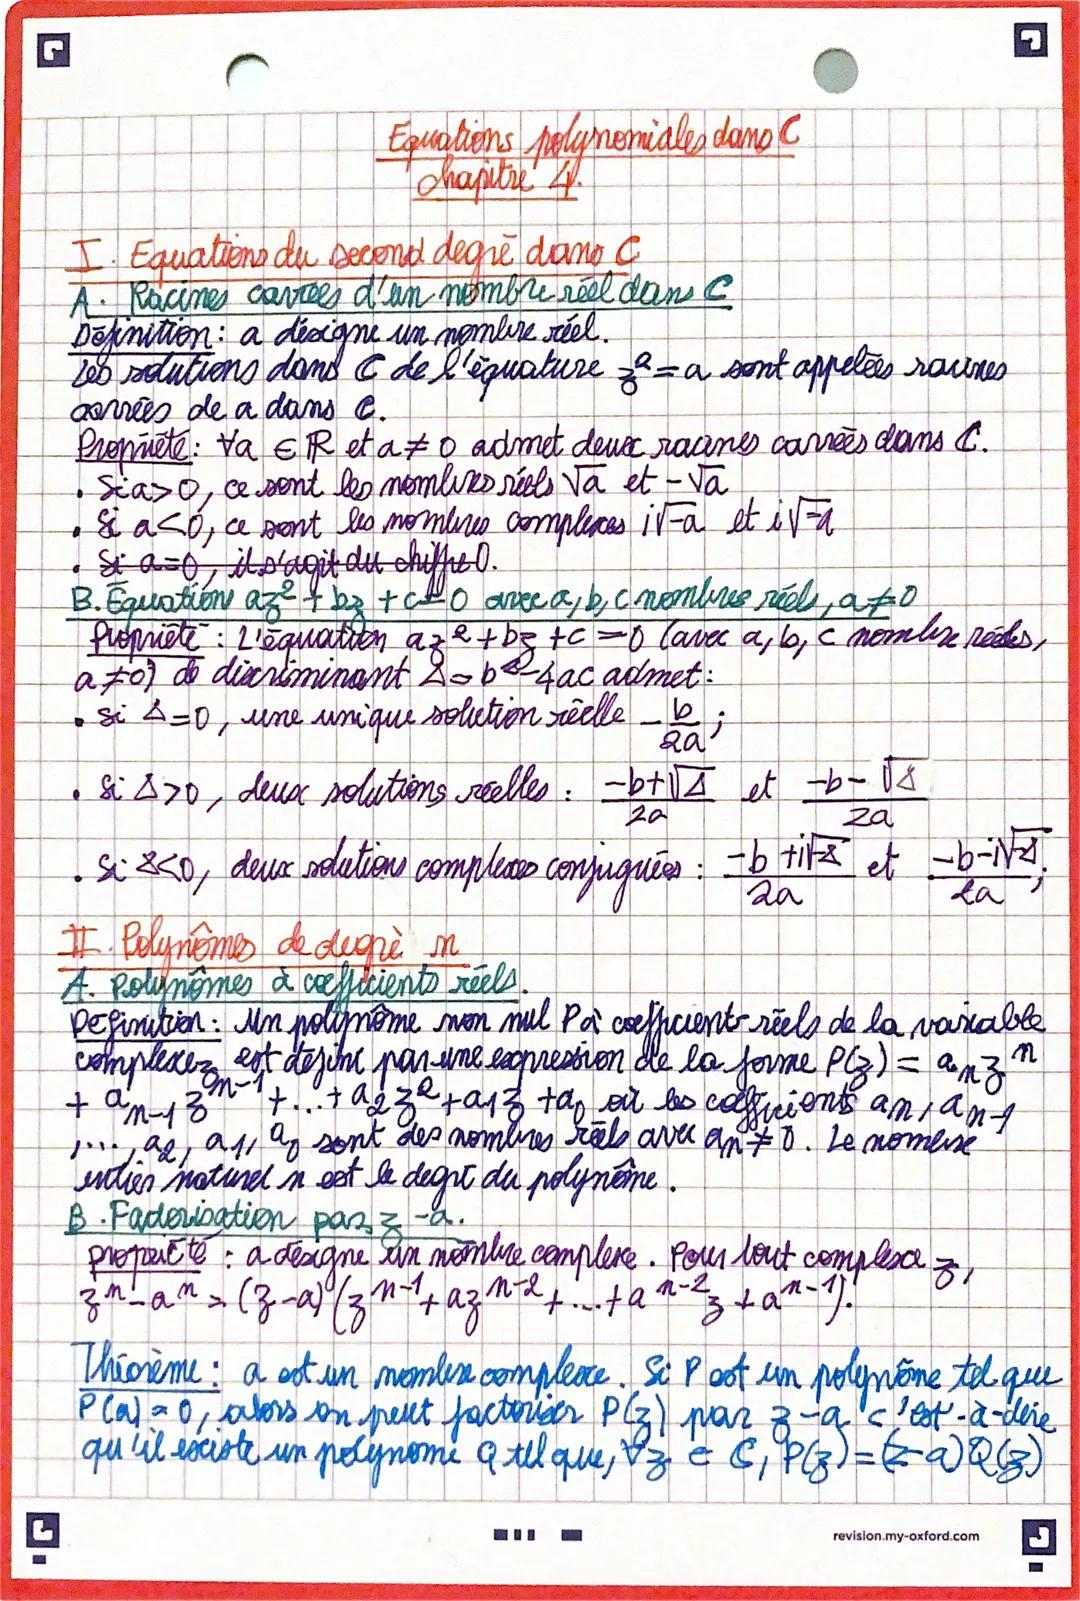 Equations polynomiales dans C
chapitre 4.
I. Equations du second degré dans C
A. Racines carrées d'un nombre réel dans C
Définition: a désigne un nombre réel.
Les solutions dans C de l'équature z²=a sont appelées racines
carrées de a dans C.
Propriété: ∀a ∈ ℝ et a≠0 admet deux racines carrées dans C.
• Si a>0, ce sont les nombres réels √a et -√a
• Si a<0, ce sont les nombres complexes i√-a et i√-a
• Si a=0, il s'agit du chiffre 0.
B. Equation az²+bz+c=0 avec a, b, c nombres réels, a≠0
Propriété : L'équation az²+bz+c=0 (avec a, b, c nombre réels,
a≠0) de discriminant Δ=b²-4ac admet:
• si Δ=0, une unique solution réelle -b/2a ;
• Si Δ>0, deux solutions réelles : (-b+√Δ)/2a et (-b-√Δ)/2a
• Si Δ<0, deux solutions complexes conjuguées : (-b+i√-Δ)/2a et (-b-i√-Δ)/2a ;
II. Polynômes de degrè n
A. Polynômes à coefficients réels.
Définition: Un polynôme non nul P à coefficients réels de la variable
complexe z est définie par une expression de la forme P(z) = aₙzⁿ
+ aₙ₋₁zⁿ⁻¹+...+a₂z²+a₁z+a₀ où les coefficients aₙ, aₙ₋₁
,..., a₂, a₁, a₀ sont des nombres réels avec aₙ≠0. Le nombre
entier naturel n est le degré du polynôme.
B. Factorisation par z-a.
propriété : a désigne un nombre complexe. Pour tout complexe z,
zⁿ-aⁿ = (z-a)(zⁿ⁻¹+azⁿ⁻²+...+aⁿ⁻²z+aⁿ⁻¹).
Théorème : a est un nombre complexe. Si P est un polynôme tel que
P(a)=0, alors on peut factoriser P(z) par z-a c'est-à-dire
qu'il existe un polynome Q tel que, ∀z ∈ C, P(z)=(z-a)Q(z)
revision.my-oxford.com